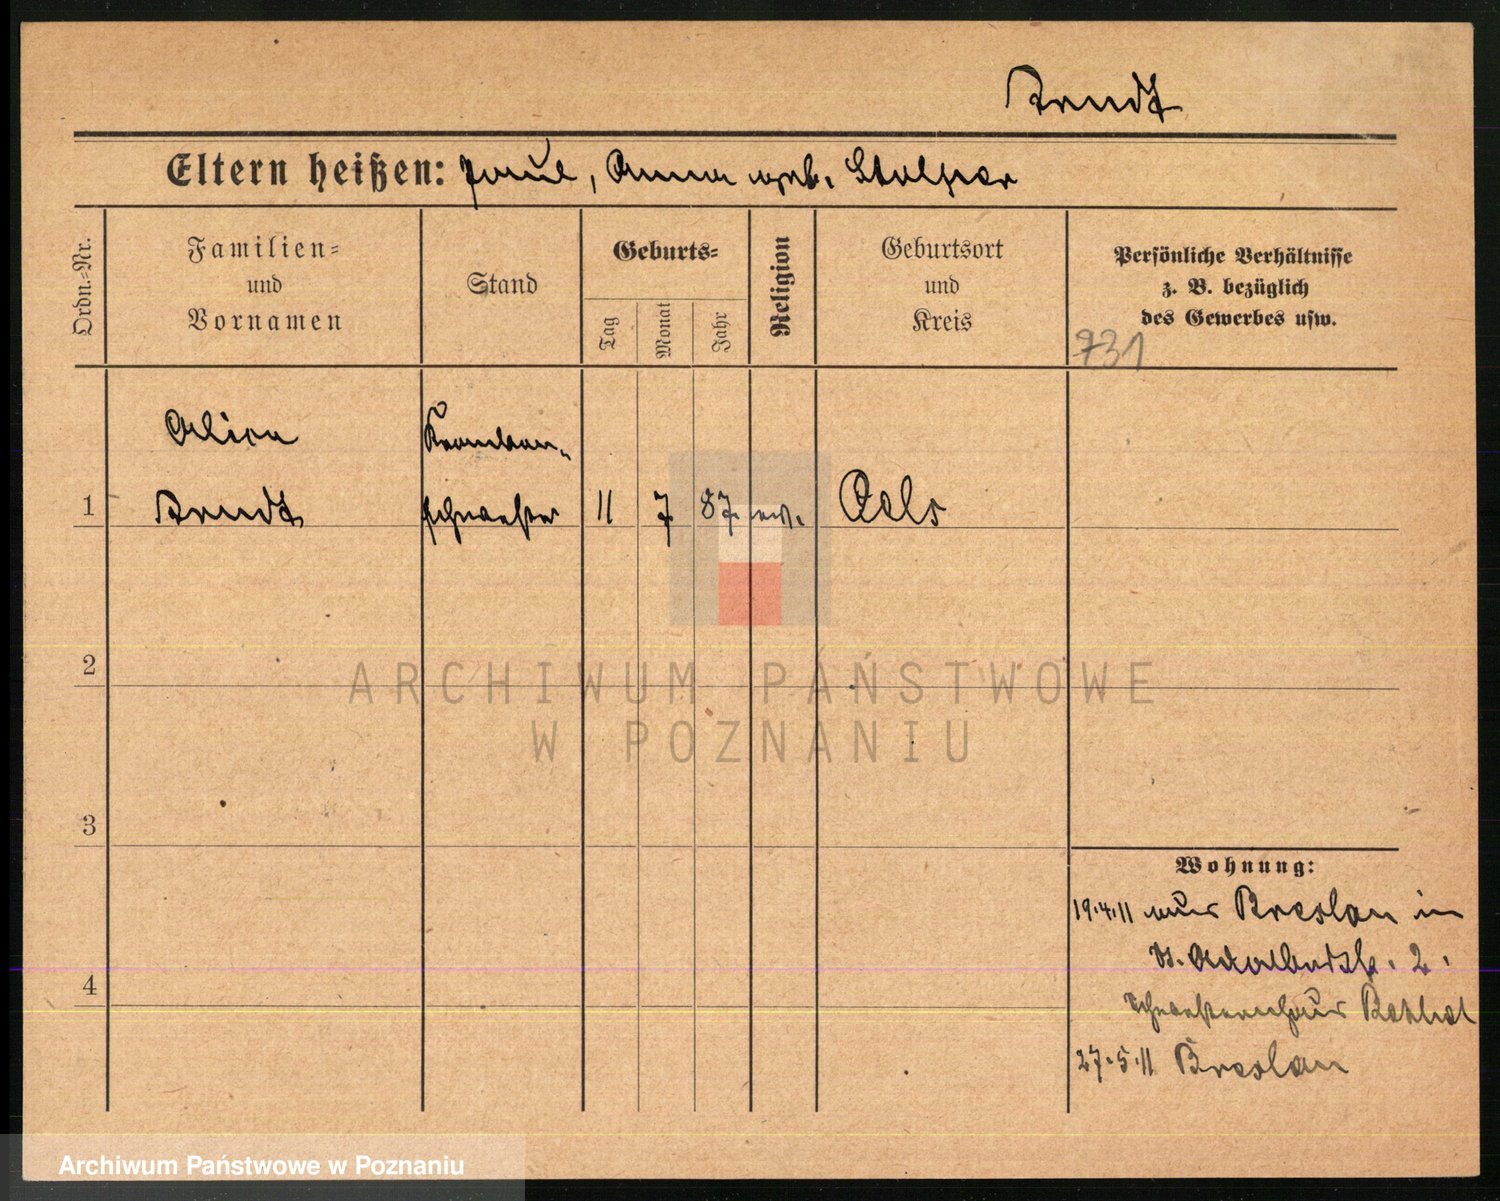 Arndt
Eltern heißen: Paul, Anna geb. Stolper
Ordn.-Nr.
Familien-
und
Vornamen
Stand
Geburts-
Tag
Monat
Jahr
Religion
Geburtsort
und
Kreis
Persönliche Verhältnisse
z. B. bezüglich
des Gewerbes usw.
731
Alice
Kranken-
1
Arndt
schwester
11
7
87
ev.
Oels
2
ARCHIWUM PAŃSTWOWE
W POZNANIU
3
Wohnung:
19.4.11 aus Breslau in
St. Adalbertstr. 2.
4
Schwesternhaus Bethel
27.5.11 Breslau
Archiwum Państwowe w Poznaniu